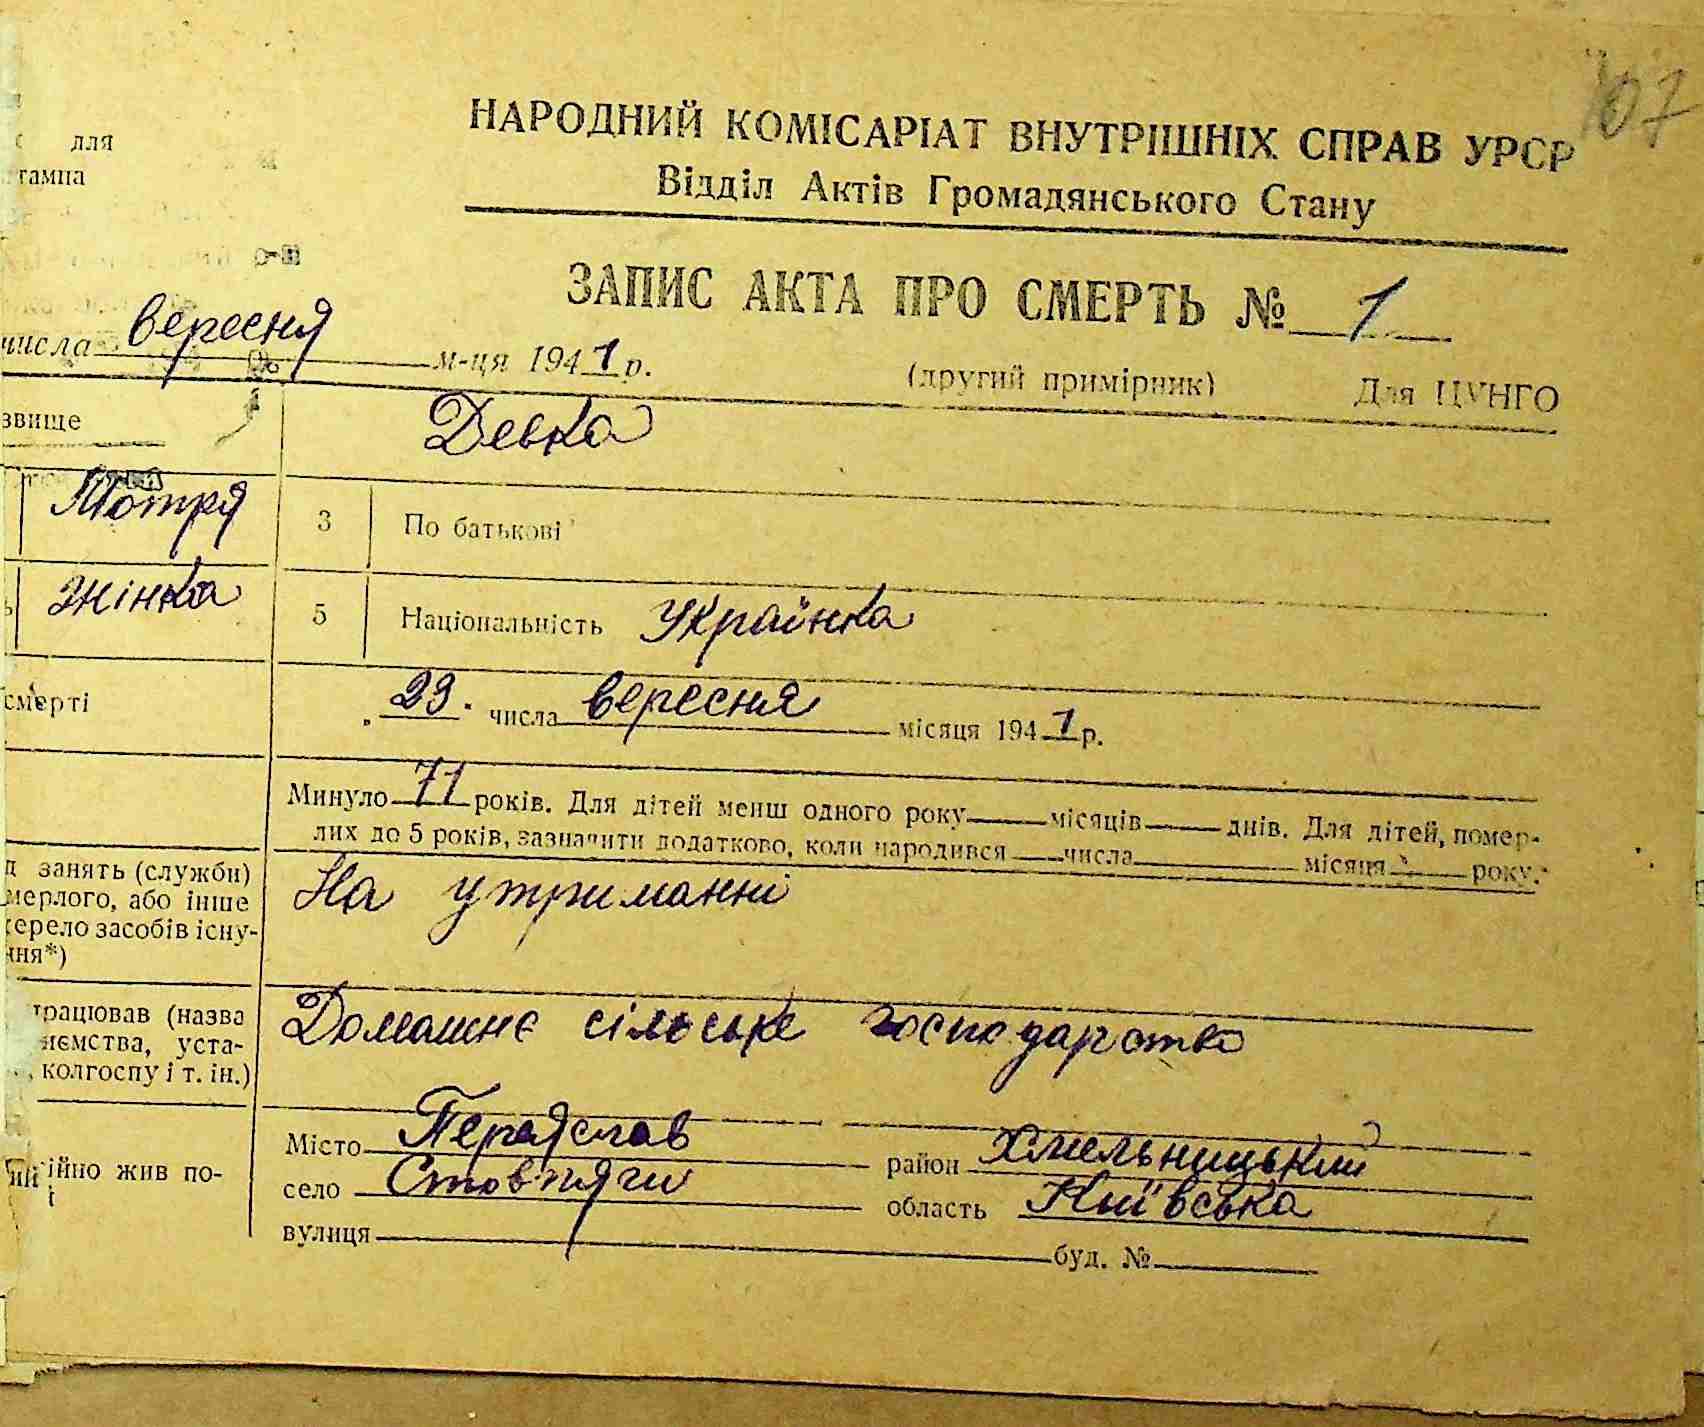 107
для
тампа
НАРОДНИЙ КОМІСАРІАТ ВНУТРІШНІХ СПРАВ УРСР
Відділ Актів Громадянського Стану
ЗАПИС АКТА ПРО СМЕРТЬ № 1
числа вересня м-ця 1941 р.
(другий примірник) Для ЦУНГО
звище Девка
Мотря 3 По батькові
ь жінка 5 Національність Українка
смерті „23" числа вересня місяця 1941 р.
Минуло 71 років. Для дітей менш одного року місяців днів. Для дітей, помер-
лих до 5 років, зазначити додатково, коли народився числа місяця року.
д занять (служби) На утриманні
мерлого, або інше
ерело засобів існу-
ння*)
працював (назва Домашнє сільське господарство
иємства, уста-
, колгоспу і т. ін.)
Місто Переяслав район Хмельницький
ійно жив по-
і
село Стовпяги область Київська
вулиця буд. №